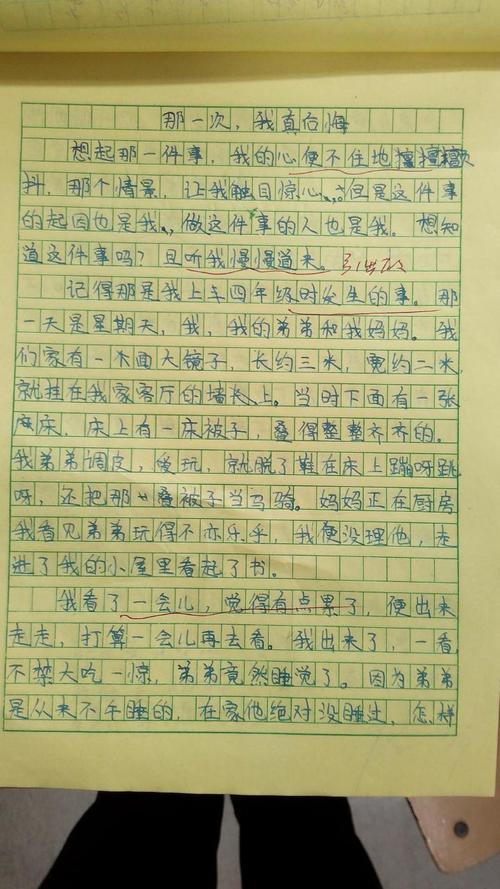 那一次，我真后悔
想起那一件事，我的心便不住地擅擅颤
抖，那个情景，让我触目惊心。但是这件事
的起因也是我，做这件事的人也是我。想知
道这件事吗？且听我慢慢道来。
记得那是我上车四年级时发生的事。那
一天是星期天，我，我的弟弟和我妈妈。我
们家有一木面大镜子，长约三米，宽约二米，
就挂在我家客厅的墙长上。当时下面有一张
床床，床上有一床被子，叠得整整齐齐的。
我弟弟调皮，爱玩，就脱了鞋在床上蹦呀跳
呀，还把那叠被子当马骑。妈妈正在厨房
我看见弟弟玩得不亦乐乎，我便没理他，走
进了我的小屋里看起了书。
我看了一会儿，觉得有点累了，便出来
走走，打算一会儿再去看。我出来了，一看，
不禁大吃一惊，弟弟竟然睡觉了。因为弟弟
是从来不午睡的，在家他绝对没睡过，怎样